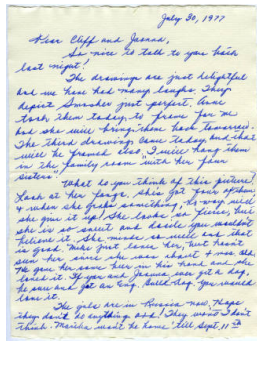 July 30, 1977
Dear Cliff and Joanna,
So nice to talk to you both
last night!
The drawings are just delightful
and we have had many laughs. They
depict Smasher just perfect. Anne
took them today, to frame for me
and she will bring them back tomorrow.
The third drawing came today, and that
will be framed also. I will hang them
in the family room with her four
sisters.
What do you think of this picture!
Look at her fangs, she's got four of them
& when she grabs something, no way will
she give it up! She looks so fierce, but
she is so sweet and docile you wouldn't
believe it. She minds so well and that
is good. Mike just loves her, but hasn't
seen her since she was about 4 mos. old.
He gave her some in his hand and she
loved it. If you and Joanna ever get a dog,
be sure and get an Eng. Bulldog. You would
love it.
The girls are in Russia now. Hope
they don't do anything odd! They won't I don't
think. Marsha won't be home 'till Sept. 11th